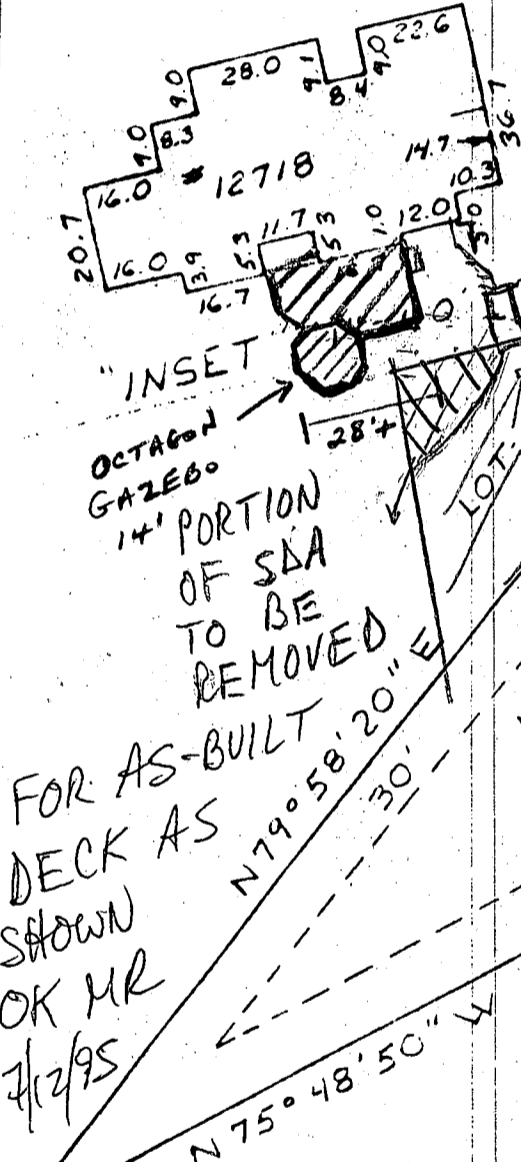 22.6
28.0
9.0
9.1
9.0
8.4
36.7
9.0
8.3
14.7
16.0
# 12718
10.3
20.7
16.0
3.9
5.3
11.7
5.3
1.0
12.0
5.0
16.7
"INSET"
OCTAGON
GAZEBO
14'
28'+
PORTION
OF SDA
TO BE
REMOVED
LOT.
FOR AS-BUILT
DECK AS
SHOWN
OK MR
7/12/95
N79°58'20" E
30'
N75°48'50" W